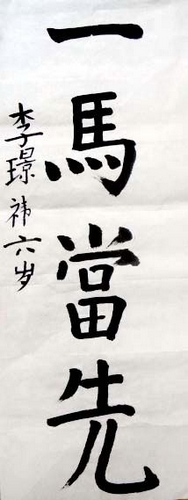 一馬當先
李璟祎六岁